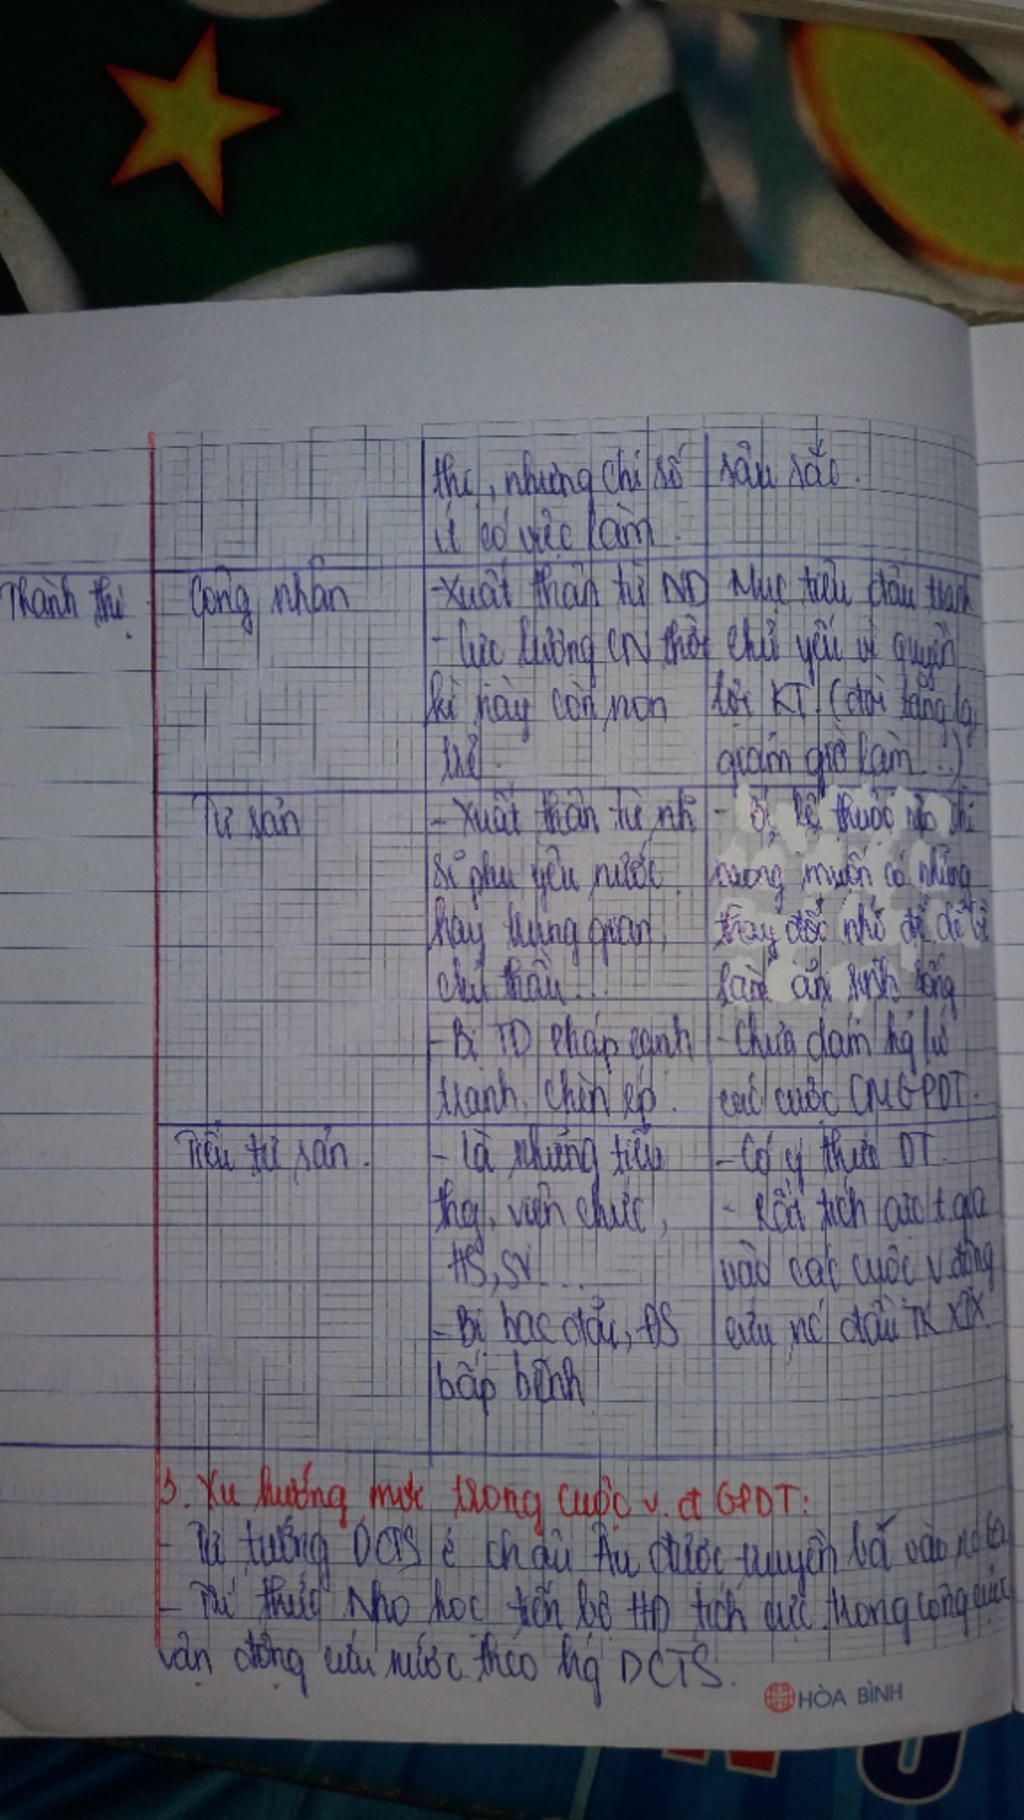 thị, nhưng chỉ số
ít có việc làm.
sâu sắc.
Thành thị
Công nhân
- Xuất thân từ ND
- Lực lượng CN thời
kì này còn non
trẻ.
Mục tiêu đấu tranh
chủ yếu vì quyền
lợi KT (đòi tăng lg,
giảm giờ làm...)
Tư sản
- Xuất thân từ nh
sĩ phu yêu nước
hay trung gian,
chủ thầu...
- Bị TD Pháp cạnh
tranh, chèn ép.
- Bị lệ thuộc nên chỉ
mong muốn có những
thay đổi nhỏ để dễ bề
làm ăn sinh sống
- Chưa dám hg ứ
các cuộc CMGPDT.
Tiểu tư sản.
- Là những tiểu
thg, viên chức,
HS, SV...
- Bị bạc đãi, ĐS
bấp bênh
- Có ý thức DT.
- Rất tích cực t.gia
vào các cuộc v.động
cứu nc đầu TK XIX.
3. Xu hướng mới trong cuộc v.đ GPDT:
- Tư tưởng DCTS ở châu Âu được truyền bá vào
- Trí thức Nho học tiến bộ HĐ tích cực trong công cuộc
vận động cứu nước theo hg DCTS.
HÒA BÌNH